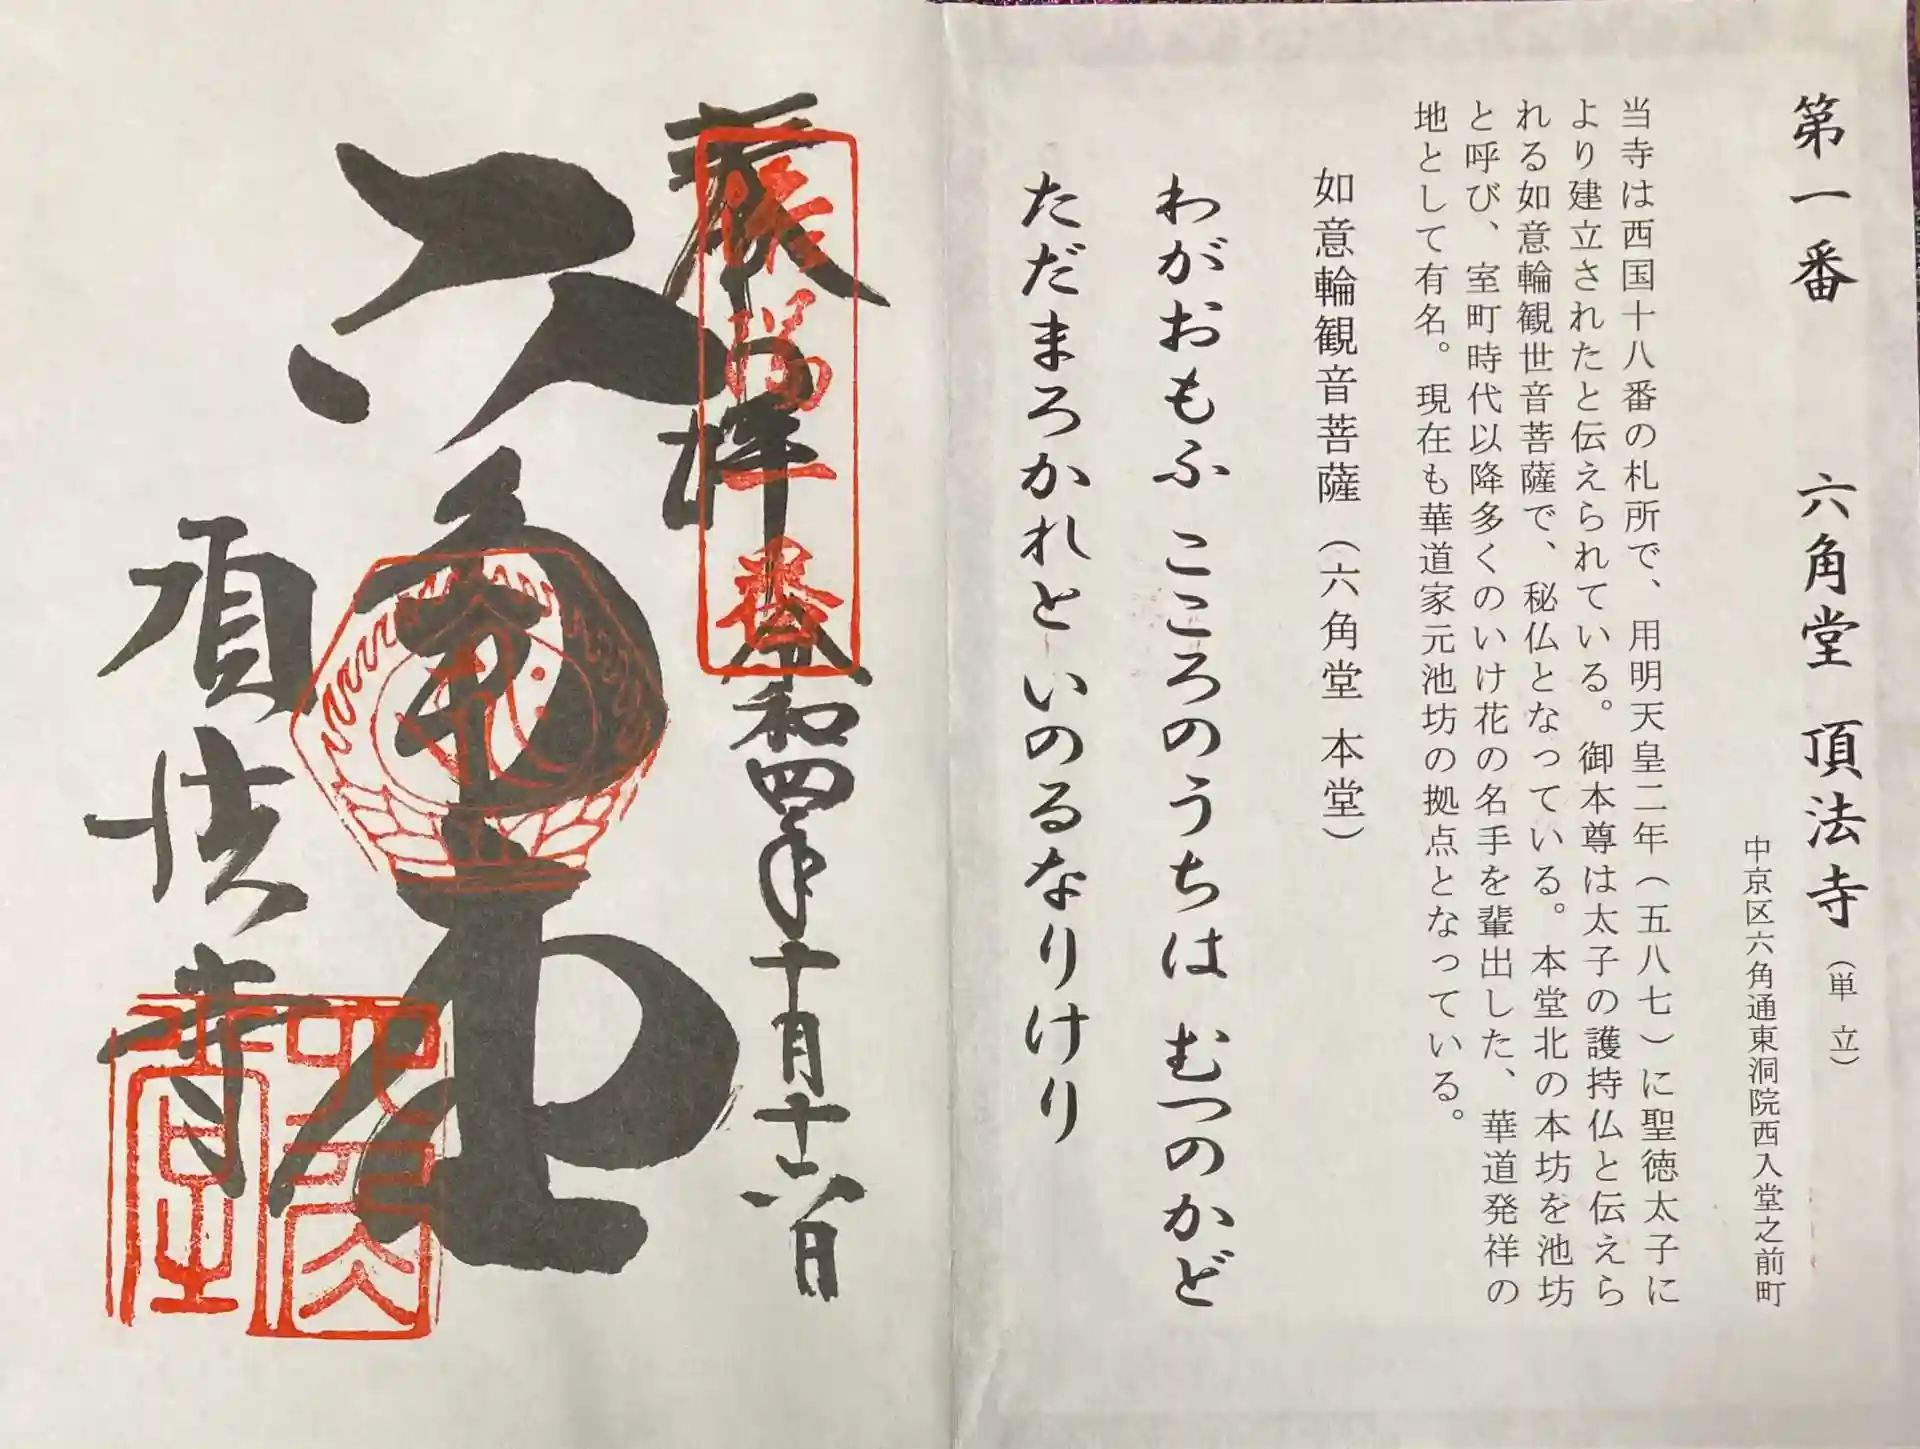 第一番　六角堂 頂法寺（単立）
中京区六角通東洞院西入堂之前町
当寺は西国十八番の札所で、用明天皇二年（五八七）に聖徳太子に
より建立されたと伝えられている。御本尊は太子の護持仏と伝えら
れる如意輪観世音菩薩で、秘仏となっている。本堂北の本坊を池坊
と呼び、室町時代以降多くのいけ花の名手を輩出した、華道発祥の
地として有名。現在も華道家元池坊の拠点となっている。
如意輪観音菩薩（六角堂 本堂）
わがおもふ こころのうちは むつのかど
ただまろかれと いのるなりけり
奉拝
令和四年十月十六日
洛陽一番
六角堂
頂法寺
六角堂